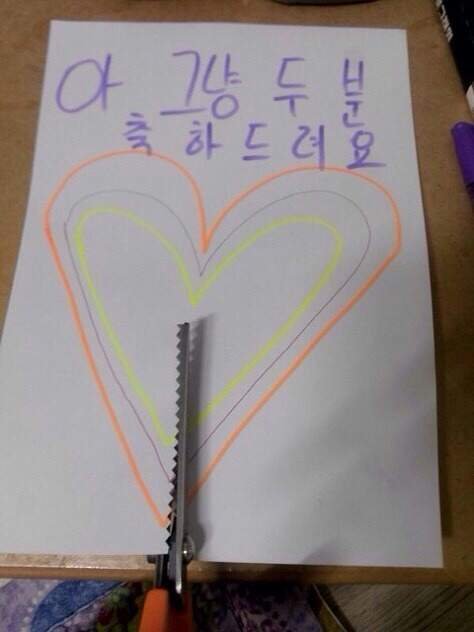 아 그냥 두 분
축 하 드 려 요